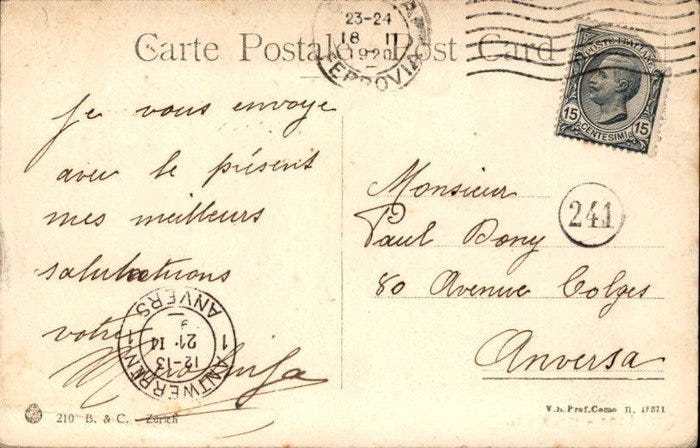 Carte Postale Post Card
23-24
18 II
1920
FERROVIA
POSTE ITALIANE
15 15
CENTESIMI
Je vous envoye
avec le présent
mes meilleurs
salutations
votre
ANTWERPEN
1 1
12-13
21 14
ANVERS
Monsieur
Paul Bony
80 Avenue Colges
Anversa
241
210 B. & C. Zürich
V.b. Pref. Como n.